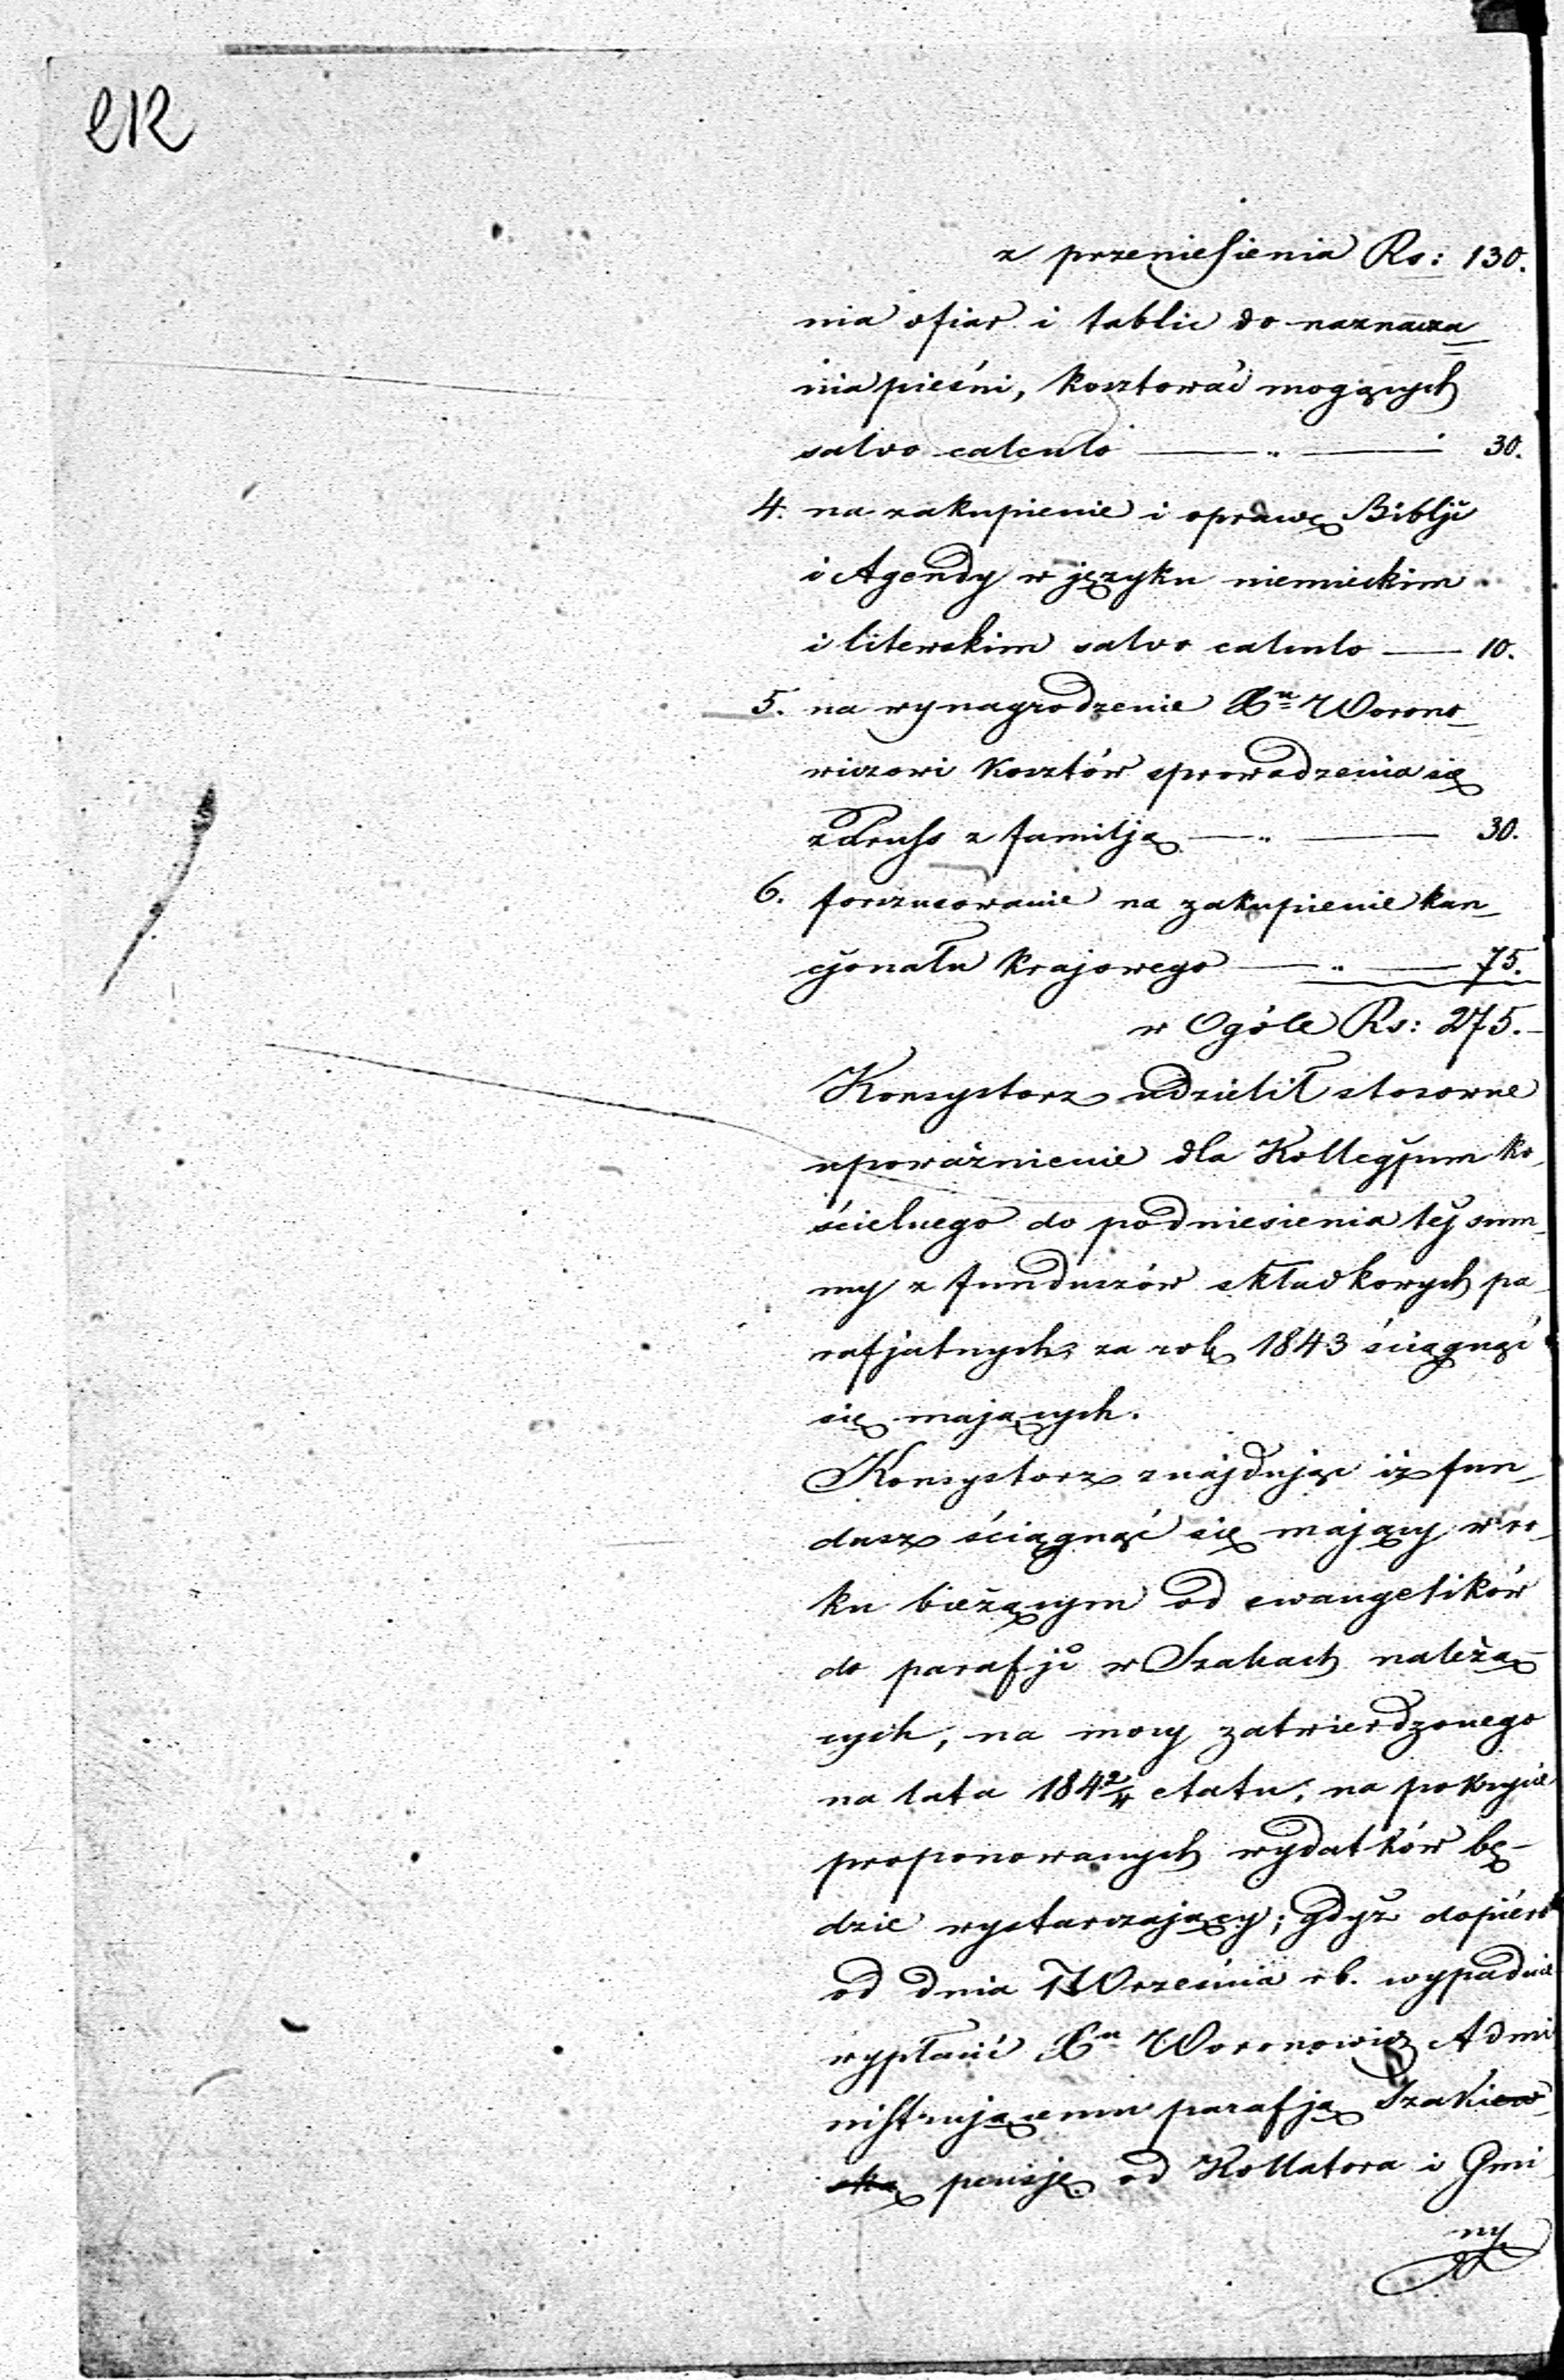 212
z przeniesienia Rs: 130.
nia ofiar i tablic do naznacza
nia pieśni, kosztować mogących
salvo calculo — „ — 30.
4. na zakupienie i oprawę Biblji
i Agendy w języku niemieckim
i litewskim salvo calculo — 10.
5. na wynagrodzenie Xu Worono-
wiczowi kosztów sprowadzenia się
z Pruss z familją — „ — 30.
6. forszusowanie na zakupienie kan-
cjonału krajowego — „ — 75.
w Ogóle Rs: 275.-
Konsystorz udzielił stosowne
upoważnienie dla Kollegjum ko-
ścielnego do podniesienia tej sum-
my z funduszów składkowych pa-
rafjalnych za rok 1843 ściągnąć
się mających.
Konsystorz znajdując iż fun-
dusz ściągnąć się mający w ro-
ku bieżącym od ewangelików
do parafji w Szakach należą-
cych, na mocy zatwierdzonego
na lata 1842/4 etatu, na pokrycie
proponowanych wydatków bę-
dzie wystarczający; gdyż dopiéro
od dnia 1 Września rb. wypadnie
wypłacić Xu Woronowicz Admi
nistrującemu parafją Szakiew-
ską pensję od Kollatora i Gmi
ny